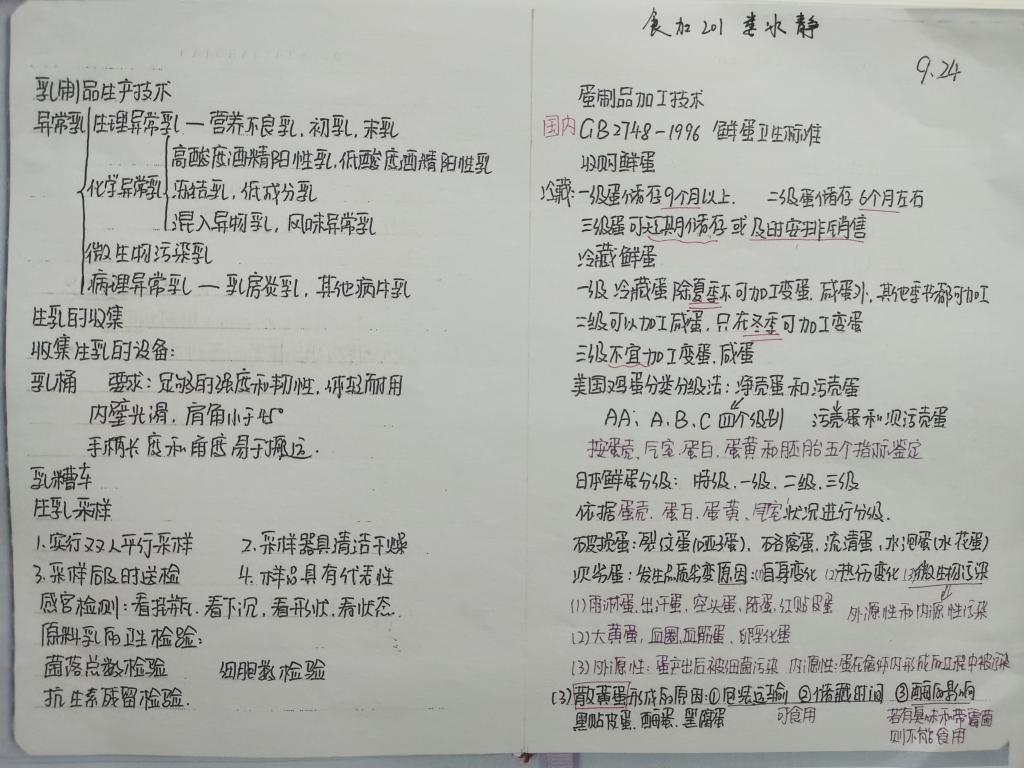 食加201 娄水静
9.24
乳制品生产技术
异常乳 生理异常乳—营养不良乳,初乳,末乳
高酸度酒精阳性乳,低酸度酒精阳性乳
化学异常乳 冻结乳,低成分乳
混入异物乳,风味异常乳
微生物污染乳
病理异常乳—乳房炎乳,其他病牛乳
生乳的收集
收集生乳的设备:
乳桶 要求:足够的强度和韧性,体轻耐用
内壁光滑,肩角小于45°
手柄长度和角度易于搬运.
乳槽车
生乳采样
1.实行双人平行采样 2.采样器具清洁干燥
3.采样后及时送检 4.样品具有代表性
感官检测:看挂瓶.看下沉,看形状,看状态.
原料乳的卫生检验:
菌落总数检验 细胞数检验
抗生素残留检验.
蛋制品加工技术
国内GB2748-1996 鲜蛋卫生标准
收购鲜蛋
冷藏:一级蛋储存9个月以上. 二级蛋储存6个月左右
三级蛋可短期储存或及时安排销售
冷藏鲜蛋
一级冷藏蛋除夏季不可加工变蛋,咸蛋外,其他季节都可加工
二级可以加工咸蛋,只在冬季可加工变蛋
三级不宜加工变蛋,咸蛋
美国鸡蛋分类分级法:净壳蛋和污壳蛋
AA、A、B、C四个级别 污壳蛋和 污壳蛋
按蛋壳、气室、蛋白、蛋黄和胚胎五个指标鉴定
日本鲜蛋分级:特级、一级、二级、三级
依据蛋壳、蛋白、蛋黄、气室状况进行分级.
破损蛋:裂纹蛋(哑子蛋)、硌窝蛋,流清蛋,水泡蛋(水花蛋)
次劣蛋:发生品质劣变原因:(1)自身变化 (2)热伤变化 (3)微生物污染
(1)雨淋蛋、出汗蛋、空头蛋、陈蛋、红贴皮蛋 外源性和内源性污染
(2)大黄蛋、血圈血筋蛋、孵化蛋
(3)外源性:蛋产出后被细菌污染 内源性:蛋在禽体内形成的过程中被污染
(3)散黄蛋形成的原因:①包装运输 ②储藏时间 ③酶的影响
黑贴皮蛋、 蛋、黑腐蛋 可食用 若有臭味和带霉菌
则不能食用